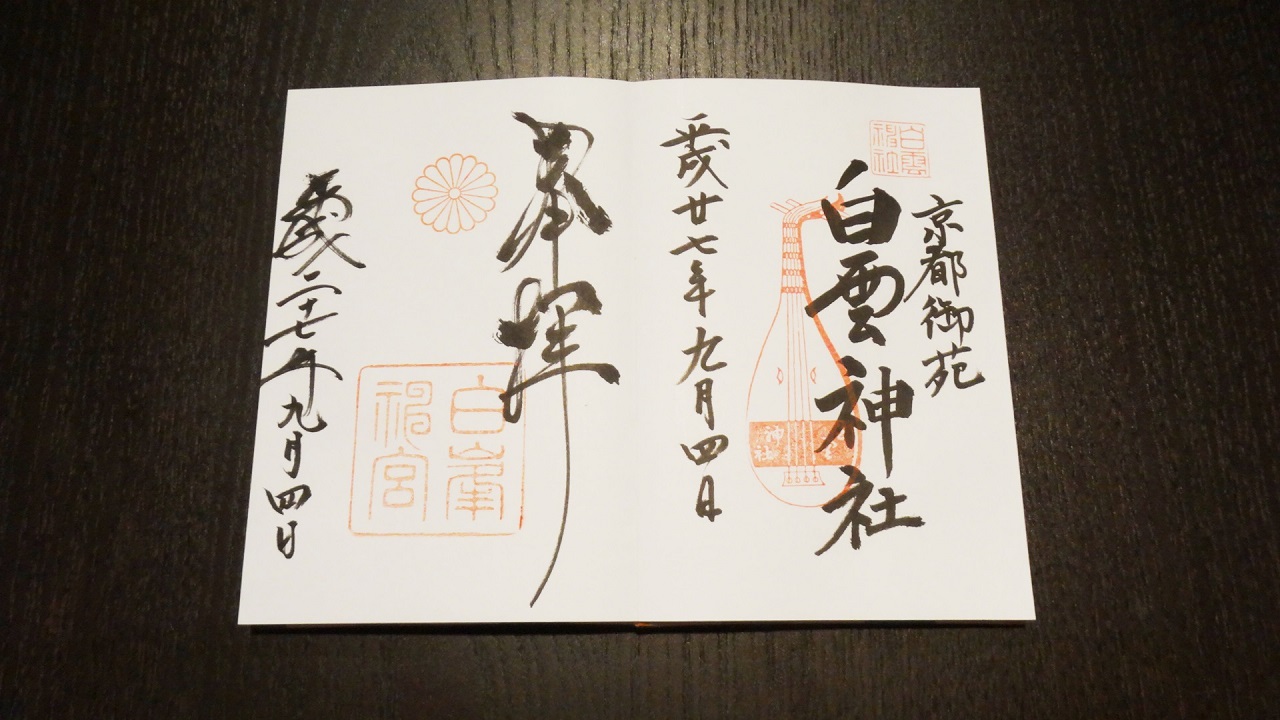 白雲神社
京都御苑
白雲神社
神社
平成廿七年九月四日
白峯神宮
平成二十七年九月四日